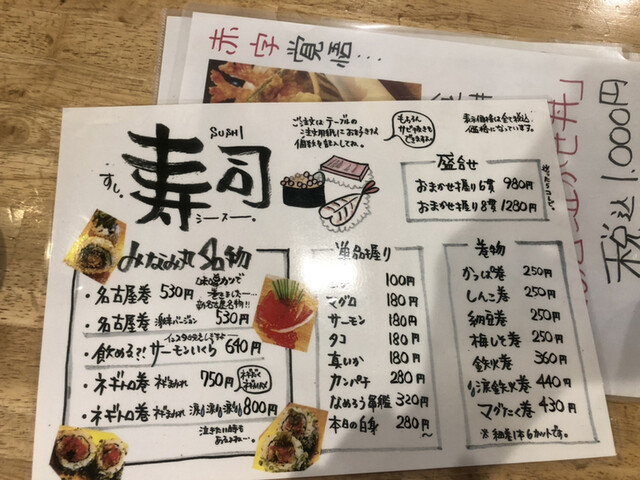 赤字覚悟…
税込 1.000円
SUSHI
すし。
寿司
シースー。
ご注文はテーブルの
注文用紙にお好きな
個数を記入してね。
もちろん
サビ抜きも
できますよ
表示価格は全て税込
価格になっています。
盛合せ
おまかせ握り6貫 980円
おまかせ握り8貫 1280円
みなみ丸名物
・名古屋巻 530円
味噌カツで
巻きました…
新名古屋名物!!
・名古屋巻 激辛バージョン 530円
・飲める?!サーモンいくら 640円
・ネギトロ巻 ネギまみれ 750円
・ネギトロ巻 ネギまみれ 涙涙涙 800円
泣きたい時も
あるよね…。
単品握り
100円
マグロ 180円
サーモン 180円
タコ 180円
真いか 180円
カンパチ 280円
なめろう軍艦 320円
本日の白身 280円〜
巻物
かっぱ巻 250円
しんこ巻 250円
納豆巻 250円
梅しそ巻 250円
鉄火巻 360円
涙鉄火巻 440円
マグたく巻 430円
※細巻1本6カットです。